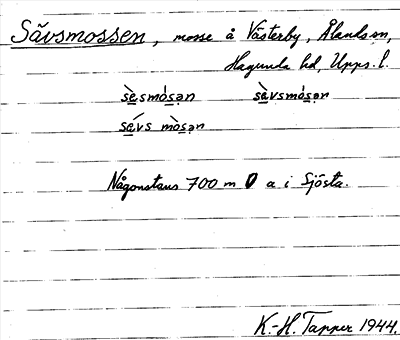 Sävsmossen, mosse å Västerby, Ålands sn,
Hagunda hd, Upps. l.
sèsmósən sàvsmósən
sévs mòsən
Någonstans 700 m O a i Sjösta.
K.-H. Tapper 1944.